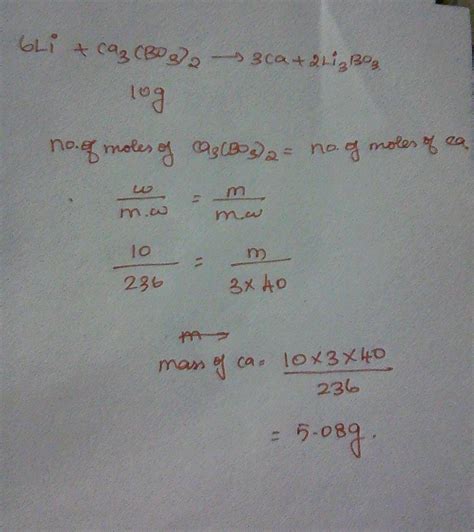 6Li + Ca₃(BO₃)₂ → 3Ca + 2Li₃BO₃
10g
no. of moles of Ca₃(BO₃)₂ = no. of moles of Ca
w/m.w = m/m.w
10/236 = m/3×40
m →
mass of Ca = 10×3×40/236
= 5.08g.